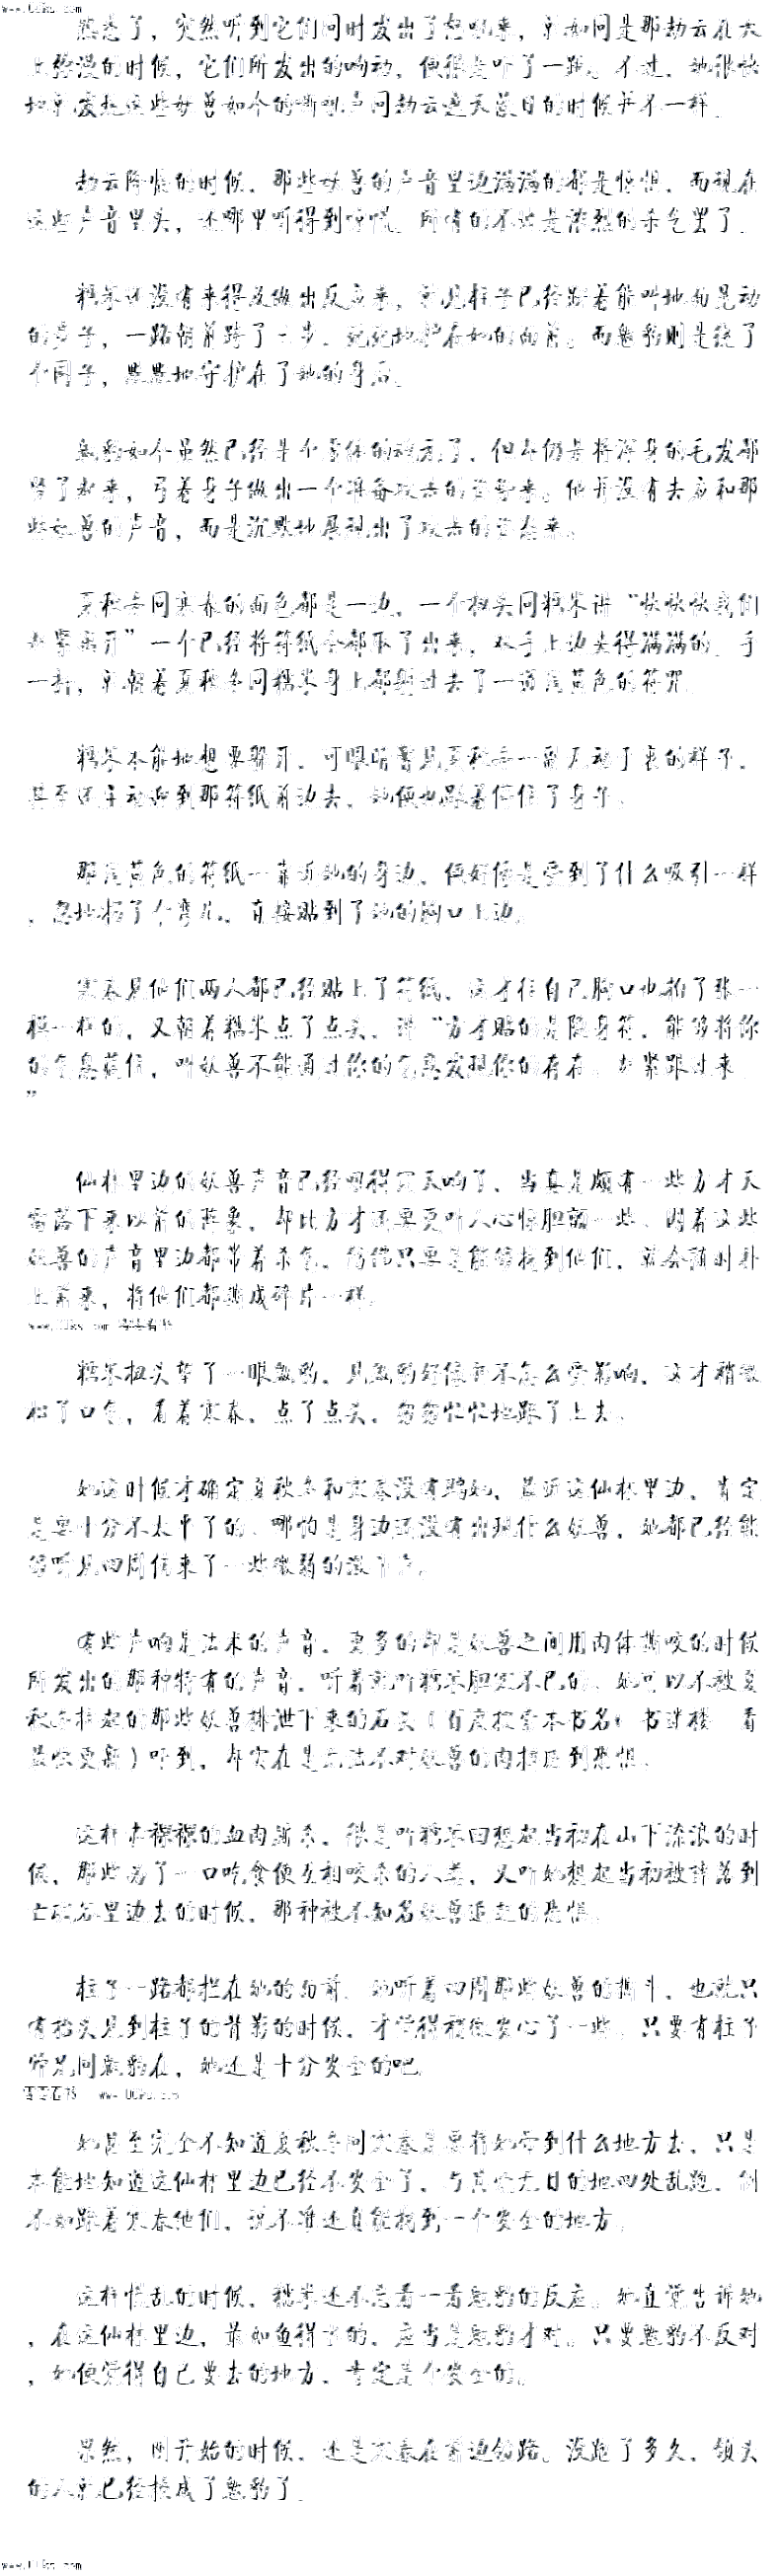 熟悉了，突然听到它们同时发出了怒吼来，就如同是那劫云在天
上弥漫的时候，它们所发出的响动，便很是吓了一跳。不过，她很快
地就发觉这些妖兽如今的嘶吼声同劫云遮天蔽日的时候并不一样。
劫云降临的时候，那些妖兽的声音里边满满的都是惊惧，而现在
这些声音里头，还哪里听得到惊慌，所有的不过是浓烈的杀气罢了。
糯米还没有来得及做出反应来，就见柱子已经踩着能叫地面晃动
的步子，一路朝前跨了一步，死死地护在她的面前。而魅豹则是绕了
个圈子，默默地守护在了她的身后。
魅豹如今虽然已经是个高阶的魂兽了，但却仍是将浑身的毛发都
竖了起来，弓着身子做出一个准备攻击的姿势来。他并没有去应和那
些妖兽的声音，而是沉默地展现出了攻击的姿态来。
夏秋冬同寒春的面色都是一边，一个扭头同糯米讲“快快快我们
赶紧离开”一个已经将符纸全都取了出来，双手上边夹得满满的，手
一抖，就朝着夏秋冬同糯米身上都射过去了一道浅黄色的符咒。
糯米本能地想要躲开，可眼睛瞥见夏秋冬一副无动于衷的样子，
甚至还主动迎到那符纸前边去，她便也跟着停住了身子。
那浅黄色的符纸一靠近她的身边，便好像是受到了什么吸引一样
，忽地拐了个弯儿，直接贴到了她的胸口上边。
寒春见他们两人都已经贴上了符纸，这才往自己胸口也拍了张一
模一样的，又朝着糯米点了点头，讲“方才贴的是隐身符，能够将你
的气息藏住，叫妖兽不能通过你的气息发现你的存在。赶紧跟过来。
”
仙林里边的妖兽声音已经吼得震天响了，当真是颇有一些方才天
雷落下来以前的阵象，却比方才还要更叫人心惊胆颤一些。因着这些
妖兽的声音里边都带着杀气，仿佛只要是能够找到他们，就会随时扑
上前来，将他们都撕成碎片一样。
糯米扭头望了一眼魅豹，见魅豹好像并不怎么受影响，这才稍微
松了口气，看着寒春，点了点头，匆匆忙忙地跟了上去。
她这时候才确定夏秋冬和寒春没有骗她，最近这仙林里边，肯定
是要十分不太平了的。哪怕是身边还没有出现什么妖兽，她都已经能
够听见四周传来了一些微弱的激斗声。
有些声响是法术的声音，更多的却是妖兽之间用肉体撕咬的时候
所发出的那种特有的声音，听着就叫糯米胆寒不已的。她可以不被夏
秋冬捡起的那些妖兽排泄下来的石头（百度搜索本书名+书迷楼 看
最快更新）吓到，却实在是无法不对妖兽的肉搏感到恐惧。
这样赤裸裸的血肉厮杀，很是叫糯米回想起当初在山下流浪的时
候，那些为了一口吃食便互相咬杀的人类，又叫她想起当初被摔落到
亡魂谷里边去的时候，那种被不知名妖兽追赶的恐惧。
柱子一路都拦在她的面前，她听着四周那些妖兽的搏斗，也就只
有抬头见到柱子的背影的时候，才觉得稍微安心了一些。只要有柱子
师兄同魅豹在，她还是十分安全的吧。
她甚至完全不知道夏秋冬同寒春是要将她带到什么地方去，只是
本能地知道这仙林里边已经不安全了，与其漫无目的地四处乱跑，倒
不如跟着寒春他们，说不准还真能找到一个安全的地方。
这样慌乱的时候，糯米还不忘看一看魅豹的反应。她直觉告诉她
，在这仙林里边，最如鱼得水的，应当是魅豹才对。只要魅豹不反对
，她便觉得自己要去的地方，肯定是个安全的。
果然，刚开始的时候，还是寒春在前边领路。没跑了多久，领头
的人就已经换成了魅豹了。